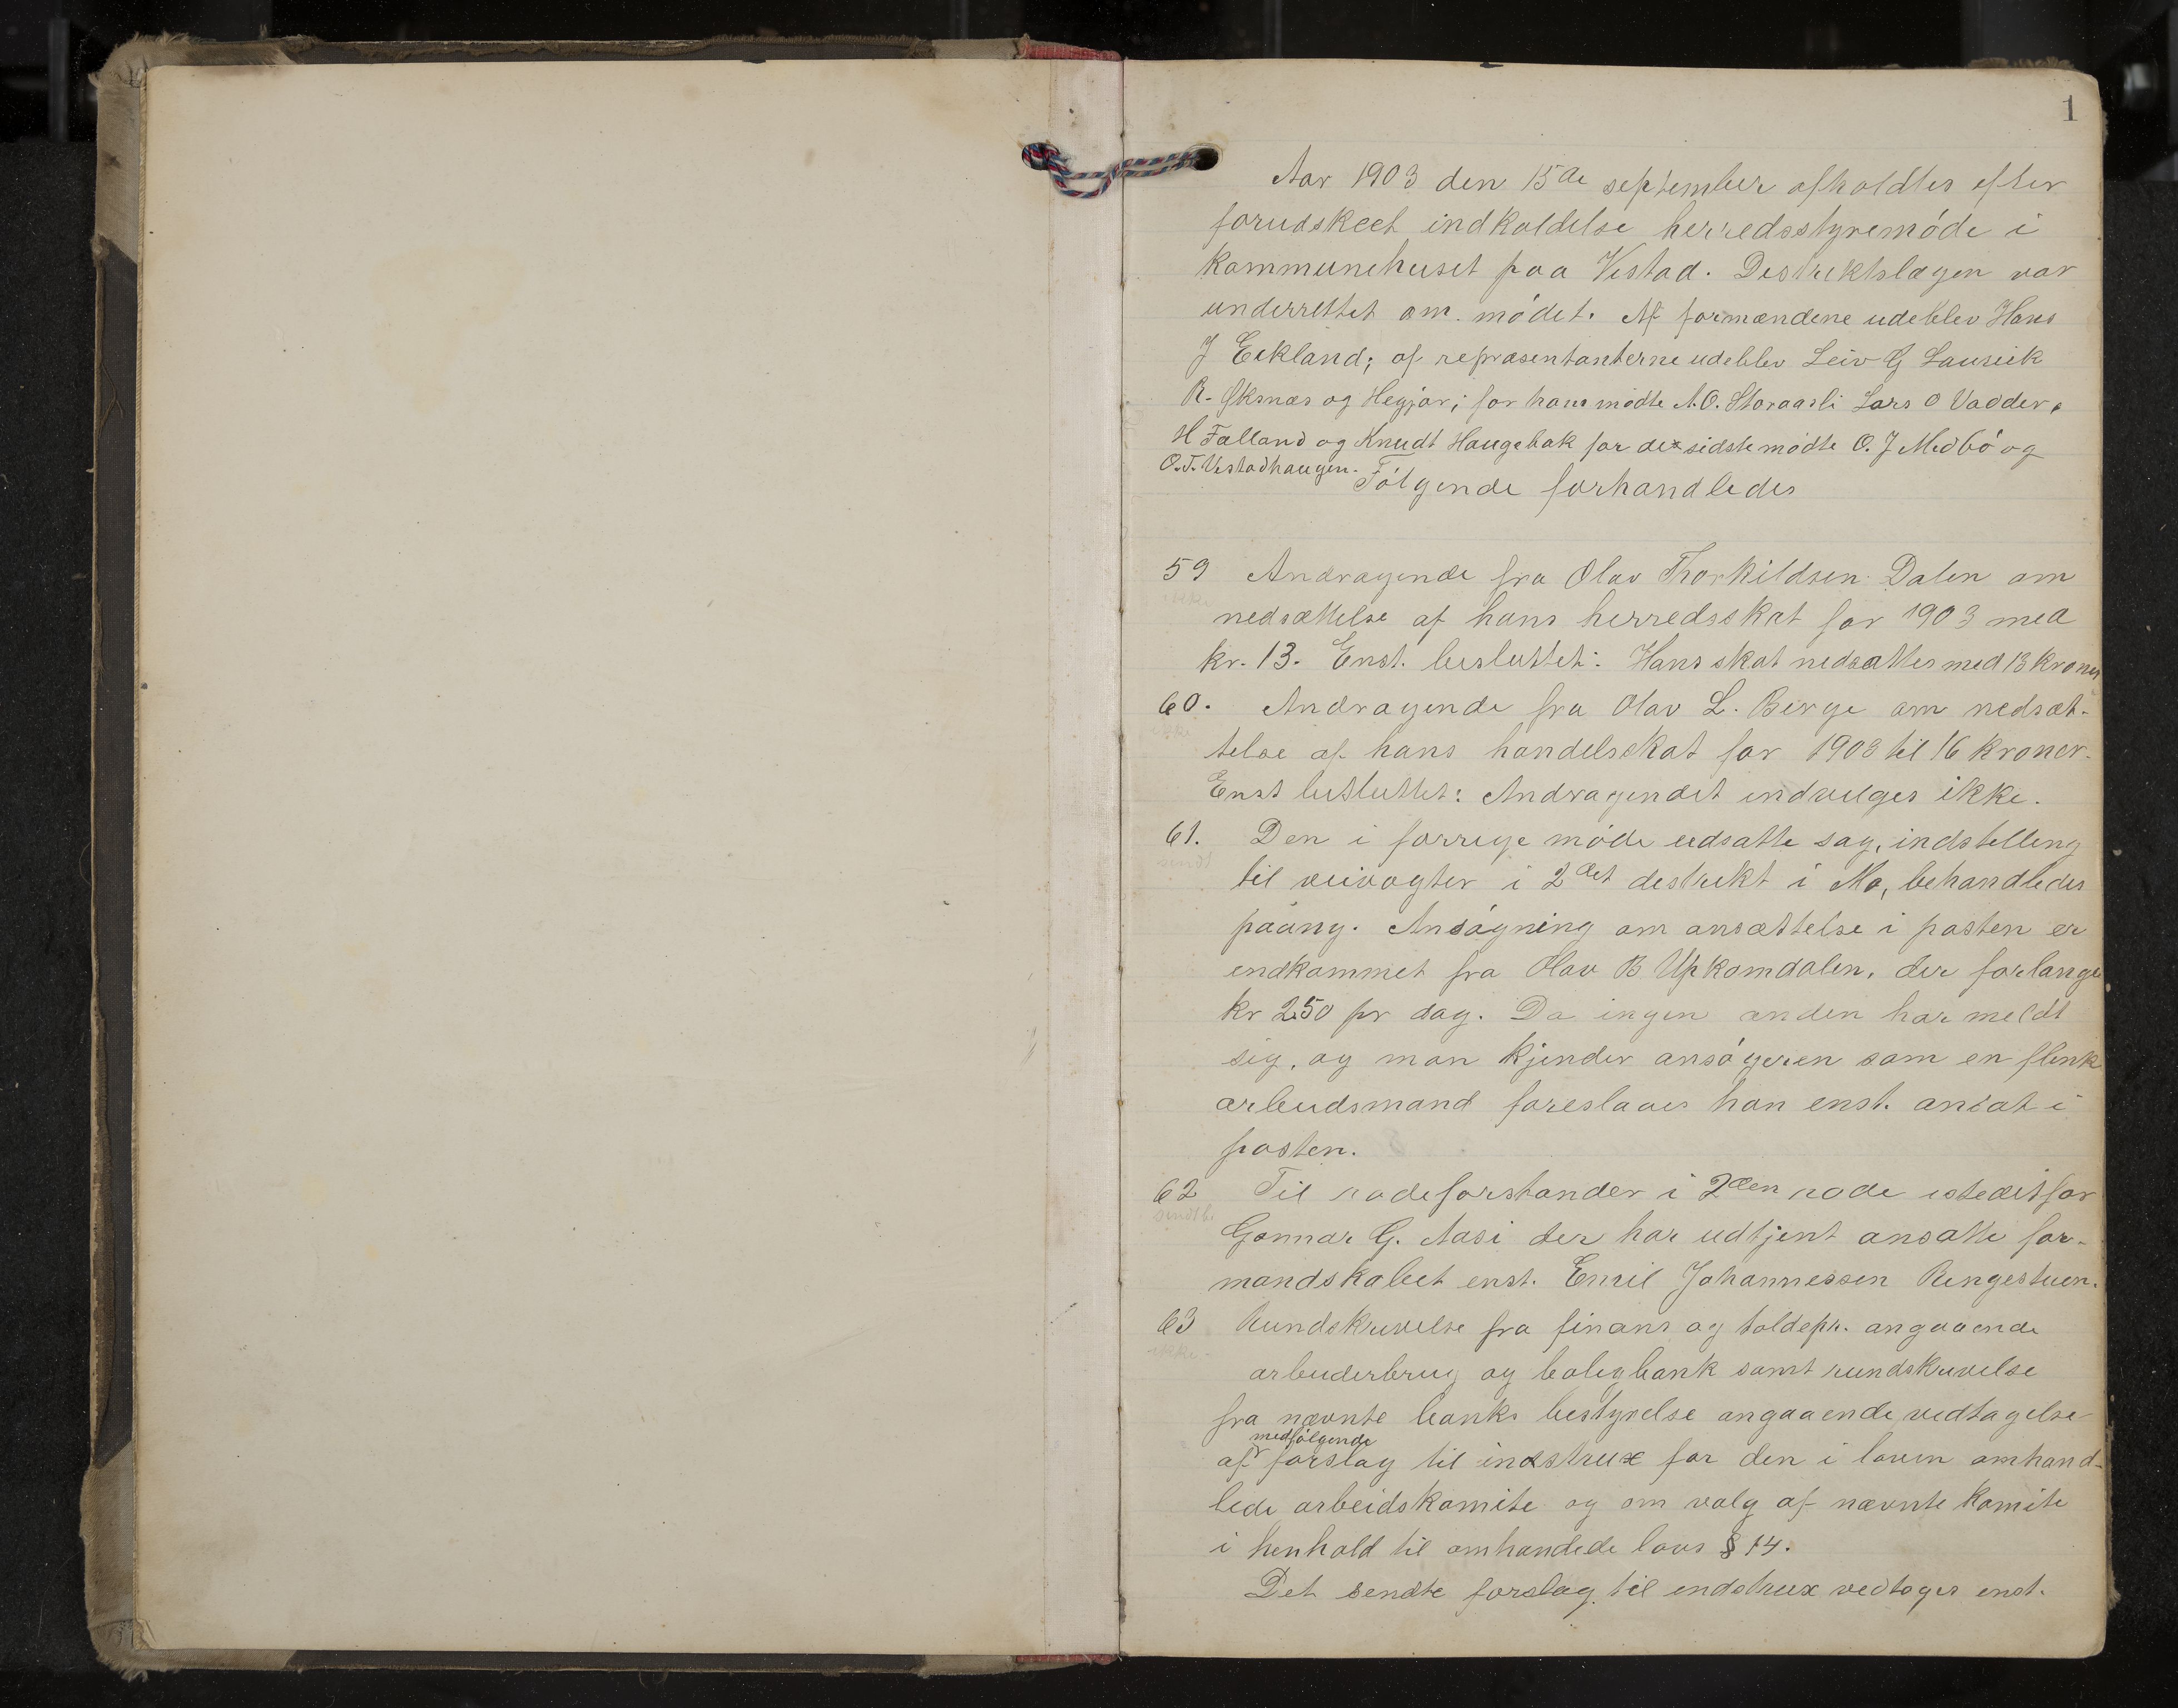 1
Aar 1903 den 15de september afholdtes efter
forudskeet indkaldelse herredsstyremøde i
kommunehuset paa Vistad. Distriktslægen var
underrettet om mødet. Af formændene udeblev Hans
J Eekland; af repræsentanterne udeblev Leiv G Lauveik
R. Øksnæs og Hegjar; for ham mødte A.O. Storaasli Lars O Vadder,
H Falland og Knudt Haugebak for de sidste mødte O. J Medbö og
O.T. Vistadhaugen. Følgende forhandledes
59 Andragende fra Olav Thorkildsen Dalen om
ikke
nedsættelse af hans herredsskat for 1903 med
kr. 13. Enst. besluttet: Hans skat nedsættes med 13 kroner
60. Andragende fra Olav L. Berge om nedsæt-
ikke
telse af hans handelsskat for 1903 til 16 kroner.
Enst besluttet: Andragendet indvilges ikke.
61. Den i forrige møde udsatte sag, indstilling
sendt
til veivogter i 2det distrikt i Mo, behandledes
paany. Ansøgning om ansættelse i posten er
indkommet fra Olav B Upkomdalen, der forlanger
kr 2.50 pr dag. Da ingen anden har meldt
sig, og man kjender ansøgeren som en flink
arbeidsmand foreslaaes han enst. ansat i
posten.
62 Til rodeforstander i 2den rode istedetfor
sendt
Gonnar G. Aasi der har udtjent ansatte for-
mandskabet enst. Emil Johannessen Ringestuen.
63 Rundskrivelse fra finans og toldepr. angaaende
ikke
arbeiderbrug og boligbank samt rundskrivelse
fra nævnte banks bestyrelse angaaende vedtagelse
medfølgende
af forslag til instrux for den i loven omhand-
lede arbeidskomite og om valg af nævnte komite
i henhold til omhandede lovs § 14.
Det sendte forslag til indstrux vedtoges enst.